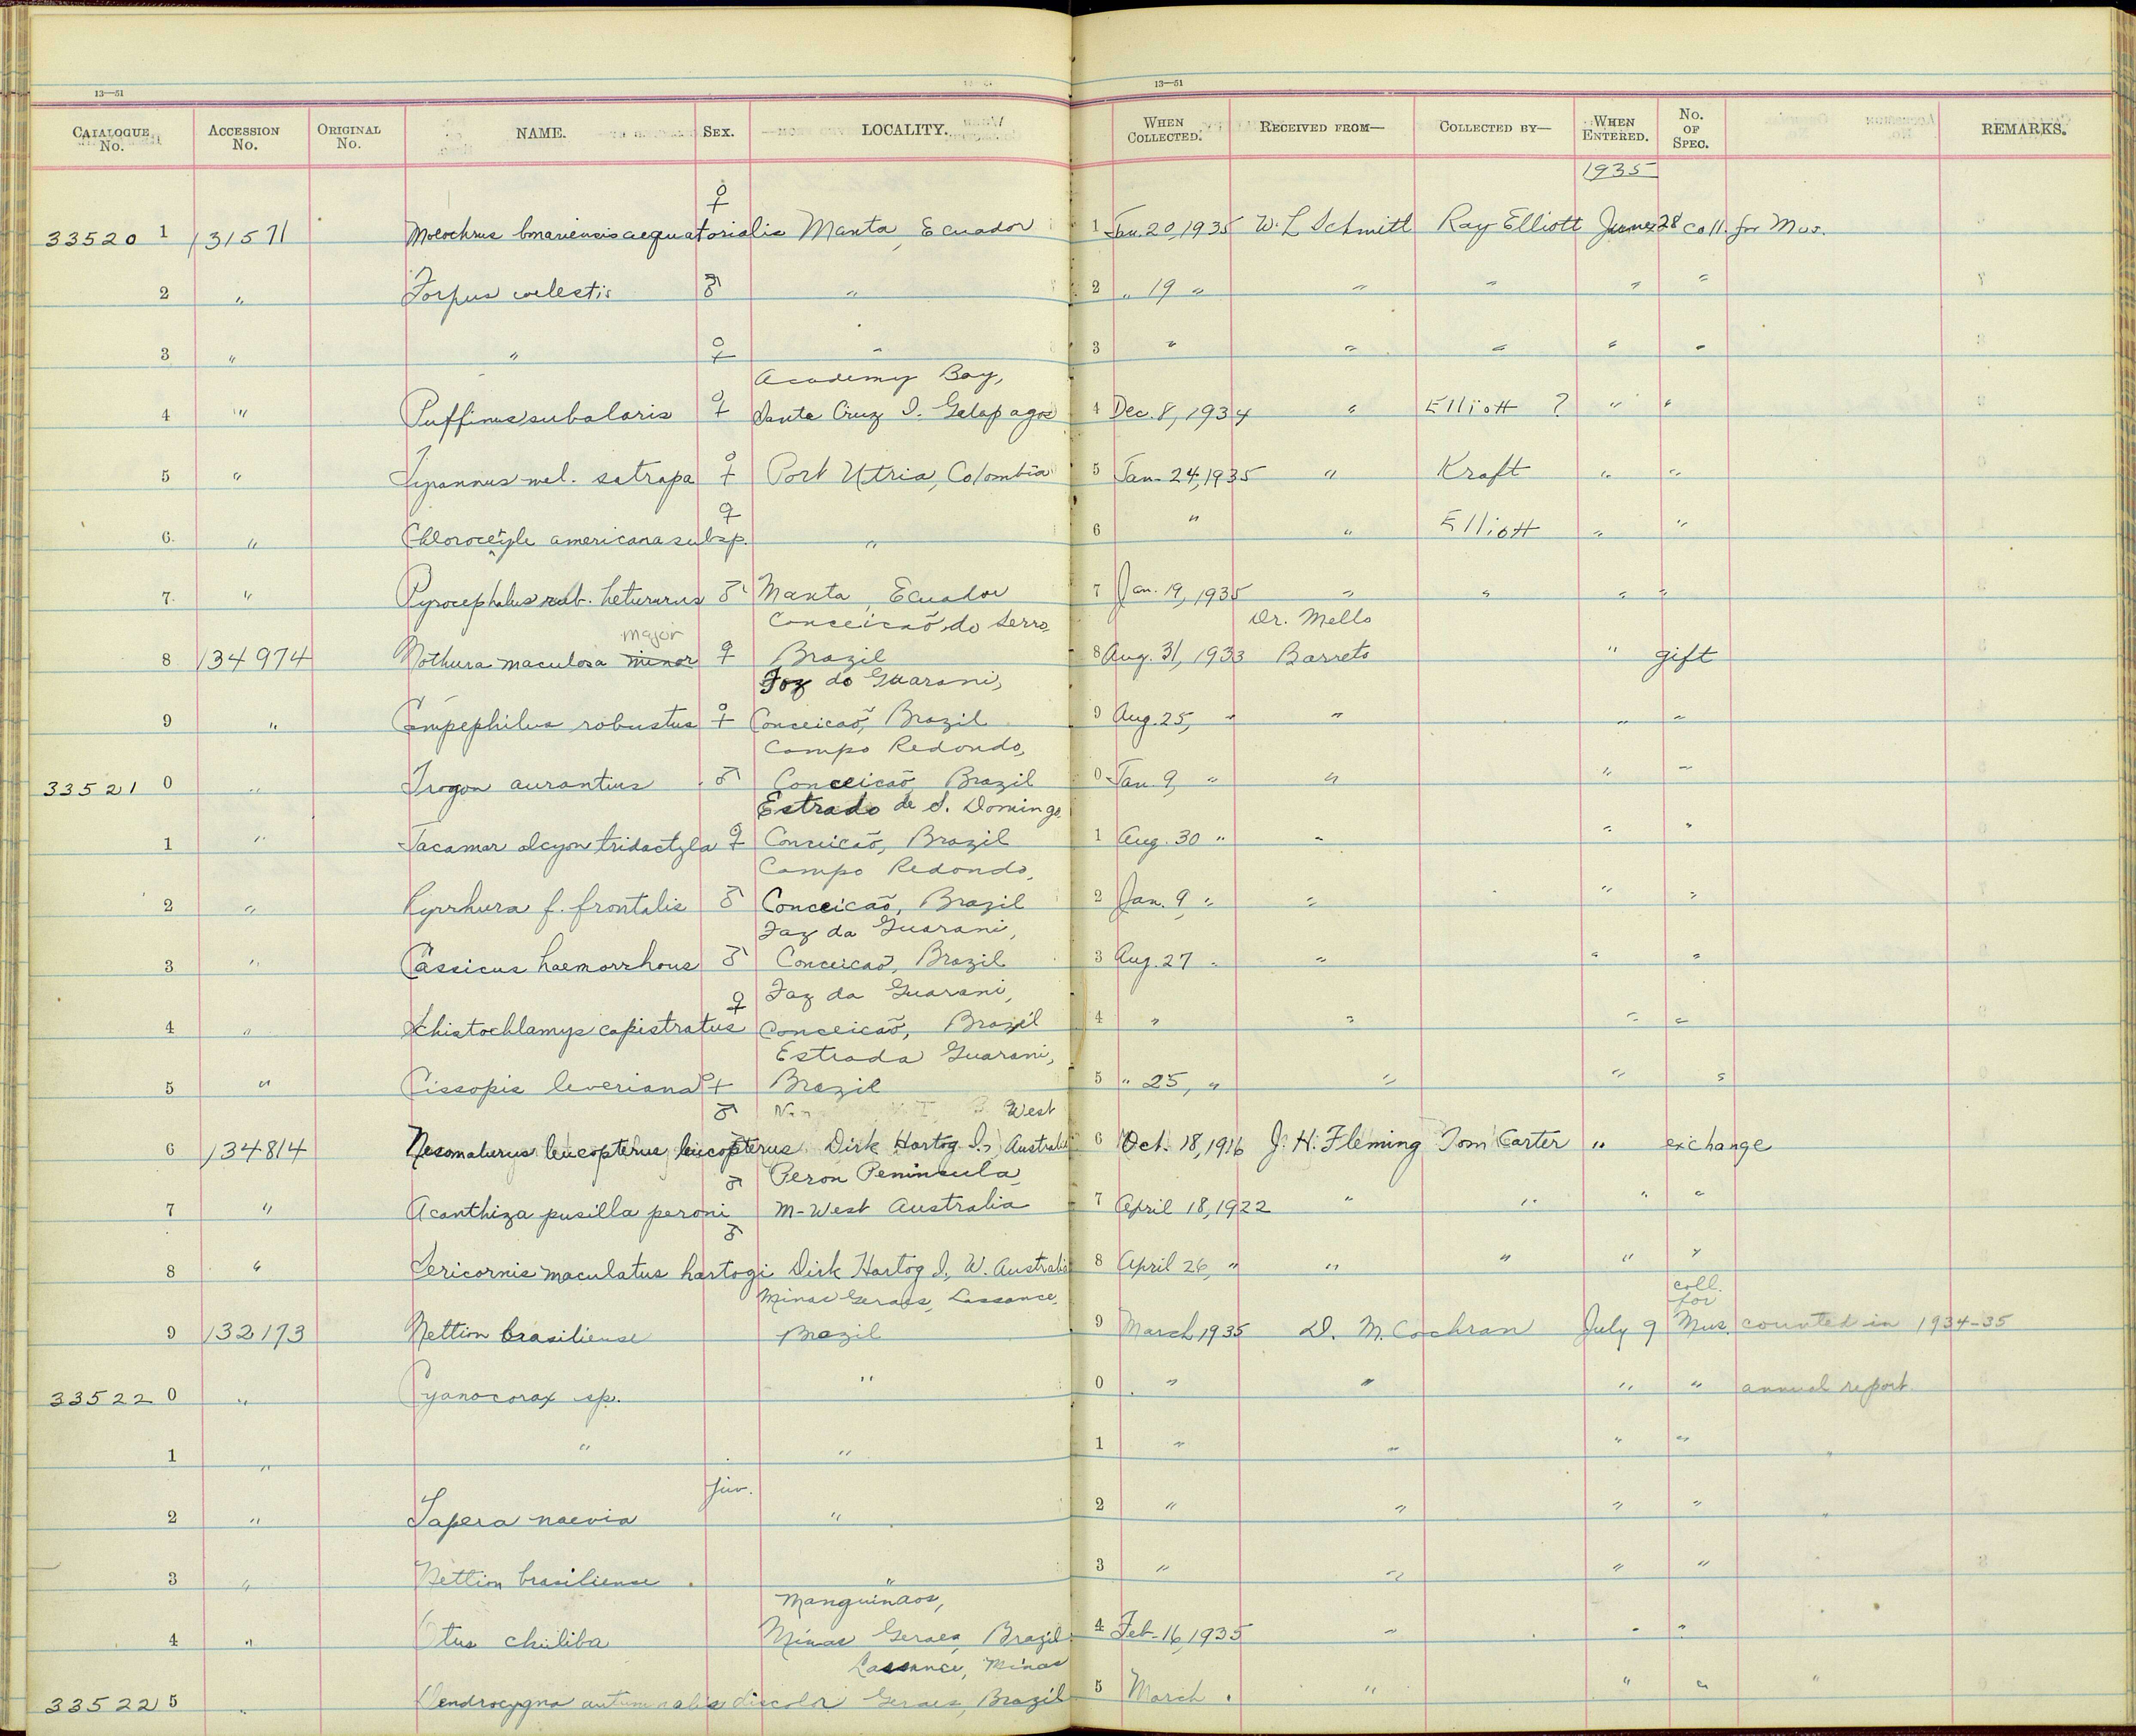 13—51 13—51
CATALOGUE No. ACCESSION No. ORIGINAL No. NAME. SEX. LOCALITY. WHEN COLLECTED. RECEIVED FROM— COLLECTED BY— WHEN ENTERED. No. OF SPEC. REMARKS.
1935
♀
33520 1 131571 Molochrus bonariensis aequatorialis Manta, Ecuador 1 Jan. 20, 1935 W. L Schmitt Ray Elliott June 28 coll. for Mus.
2 " Forpus coelestis ♂ " 2 " 19 " " " " "
3 " " ♀ " 3 " " " " "
Academy Bay,
4 " Puffinus subalaris ♀ Santa Cruz I. Galapagos 4 Dec. 8, 1934 " Elliott ? " "
5 " Tyrannus mel. satrapa ♀ Port Utria, Colombia 5 Jan. 24, 1935 " Kraft " "
♀
6 " Chloroceryle americana subsp. " 6 " " Elliott " "
7 " Pyrocephalus rub. heterurus ♂ Manta, Ecuador 7 Jan. 19, 1935 " " " "
major Conceicaõ do Serro Dr. Mello
8 134974 Nothura maculosa minor ♀ Brazil 8 Aug. 31, 1933 Barreto " gift
Foz do Guarani,
9 " Campephilus robustus ♀ Conceicaõ, Brazil 9 Aug. 25, " " " "
Campo Redondo,
33521 0 " Trogon aurantius ♂ Conceicaõ, Brazil 0 Jan. 9, " " " "
Estrado de S. Domingo,
1 " Jacamar alcyon tridactyla ♀ Conceicaõ, Brazil 1 Aug. 30 " " " "
Campo Redondo,
2 " Pyrrhura f. frontalis ♂ Conceicaõ, Brazil 2 Jan. 9 " " " "
Faz da Guarani,
3 " Cassicus haemorrhous ♂ Conceicaõ, Brazil 3 Aug. 27 " " " "
♀ Faz da Guarani,
4 " Schistochlamys capistratus Conceicaõ, Brazil 4 " " " "
Estrada Guarani,
5 " Cissopis leveriana ♀ Brazil 5 " 25, " " " "
♂ West
6 134814 Nesomalurus leucopterus leucopterus Dirk Hartog I., Australia 6 Oct. 18, 1916 J. H. Fleming Tom Carter " exchange
♂ Peron Peninsula,
7 " Acanthiza pusilla peroni M-West Australia 7 April 18, 1922 " " " "
♂
8 " Sericornis maculatus hartogi Dirk Hartog I., W. Australia 8 April 26, " " " " "
Minas Geraes, Lassance, coll. for
9 132173 Nettion brasiliense Brazil 9 March 1935 D. M. Cochran July 9 Mus. counted in 1934-35
33522 0 " Cyanocorax sp. " 0 " " " " annual report
1 " " " 1 " " " " "
juv.
2 " Tapera naevia " 2 " " " " "
3 " Nettion brasiliense " 3 " " " "
Manguinaos,
4 " Otus choliba Minas Geraes, Brazil 4 Feb. 16, 1935 " " "
Lassance, Minas
33522 5 " Dendrocygna autumnalis discolor Geraes, Brazil 5 March " " " " "